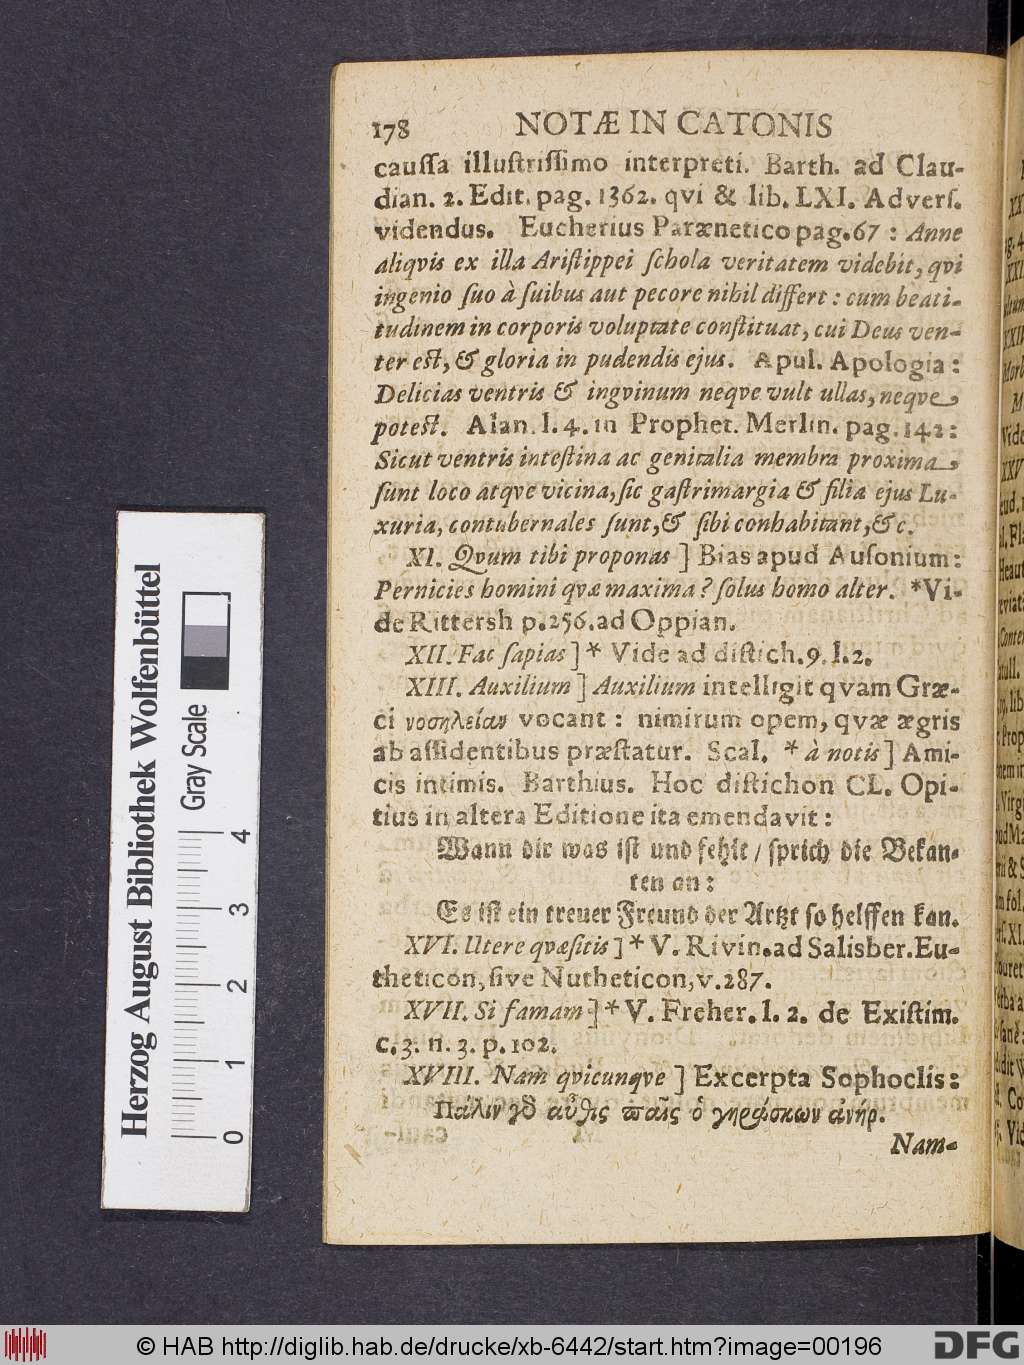 178 NOTÆ IN CATONIS
cauſſa illuſtriſſimo interpreti. Barth. ad Clau-
dian. 2. Edit. pag. 1362. qvi & lib. LXI. Adverſ.
videndus. Eucherius Parænetico pag. 67 : Anne
aliqvis ex illa Ariſtippei ſchola veritatem videbit, qvi
ingenio ſuo à ſuibus aut pecore nihil differt : cum beati-
tudinem in corporis voluptate conſtituat, cui Deus ven-
ter eſt, & gloria in pudendis ejus. Apul. Apologia :
Delicias ventris & ingvinum neqve vult ullas, neqve
poteſt. Alan. l. 4. in Prophet. Merlin. pag. 142 :
Sicut ventris inteſtina ac genitalia membra proxima,
ſunt loco atqve vicina, ſic gaſtrimargia & filia ejus Lu-
xuria, contubernales ſunt, & ſibi conhabitant, &c.
XI. Qvum tibi proponas ] Bias apud Auſonium :
Pernicies homini qvæ maxima ? ſolus homo alter. *Vi-
de Rittersh p. 256. ad Oppian.
XII. Fac ſapias ] * Vide ad diſtich. 9. l. 2.
XIII. Auxilium ] Auxilium intelligit qvam Græ-
ci νοσηλείαν vocant : nimirum opem, qvæ ægris
ab aſſidentibus præſtatur. Scal. * à notis ] Ami-
cis intimis. Barthius. Hoc diſtichon CL. Opi-
tius in altera Editione ita emendavit :
Wann dir was iſt und fehlt / ſprich die Bekan-
ten an :
Es iſt ein treuer Freund der Artzt ſo helffen kan.
XVI. Utere qvæſitis ] * V. Rivin. ad Salisber. Eu-
theticon, ſive Nutheticon, v. 287.
XVII. Si famam ] * V. Freher. l. 2. de Exiſtim.
c. 3. n. 3. p. 102.
XVIII. Nam qvicunqve ] Excerpta Sophoclis :
Πάλιν γδ αὖθις παῖς ὁ γηράσκων ἀνήρ.
Nam-
Herzog August Bibliothek Wolfenbüttel
Gray Scale
0 1 2 3 4
© HAB http://diglib.hab.de/drucke/xb-6442/start.htm?image=00196
DFG